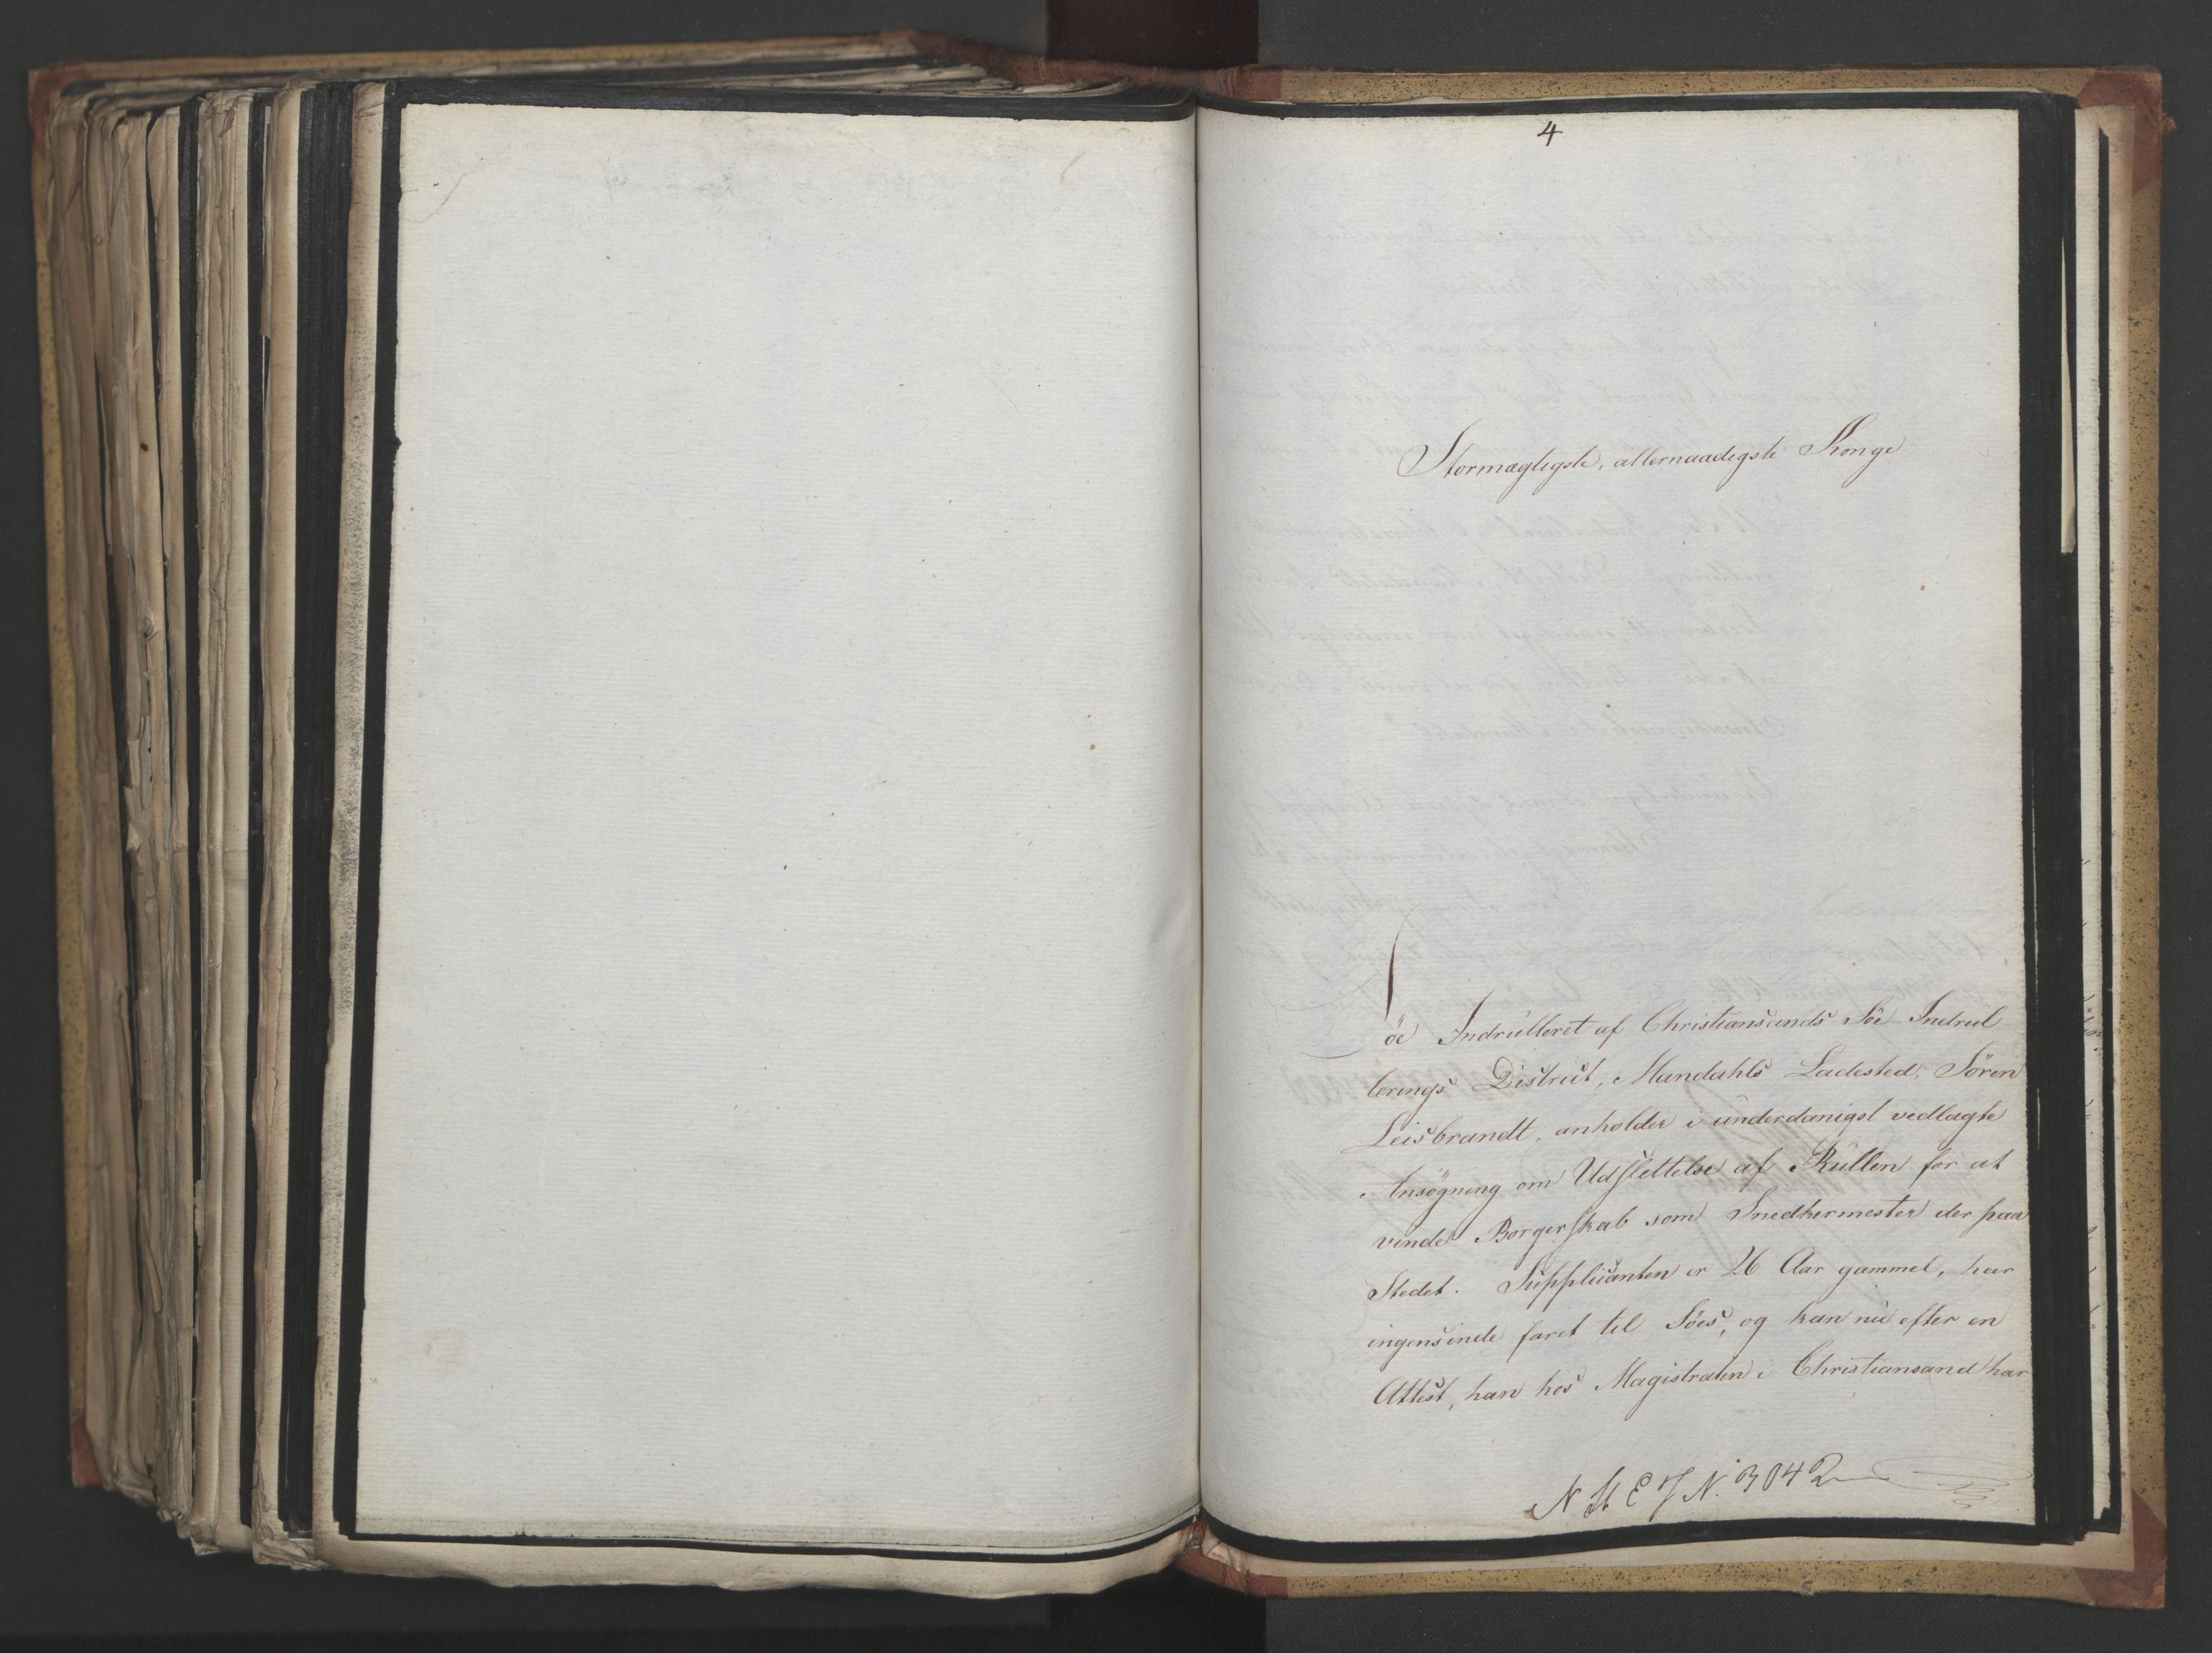 4
Stormægtigste, allernaadigste Konge
Söe Indrulleret af Christiansands Söe-Indrul
lerings District, Mandahls Ladested, Sören
Leisbrandt, anholder i underdanigst vedlagte
Ansögning om Udslettelse af Rullen for at
vinde Borgerskab som Snedkermester der paa
Stedet. Supplicanten er 26 Aar gammel, har
ingensinde faret til Söes, og kan nu efter en
Attest, han hos Magistraten i Christiansand har
N. 3042